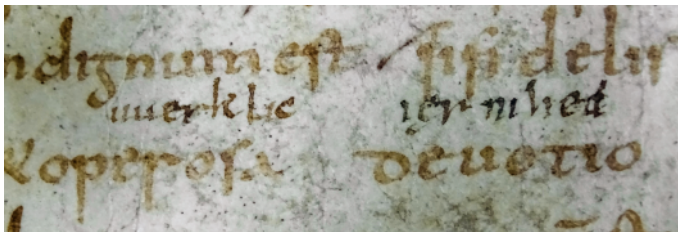 ndignum est si fidelis
uuerklic iernihed
& operosa devotio